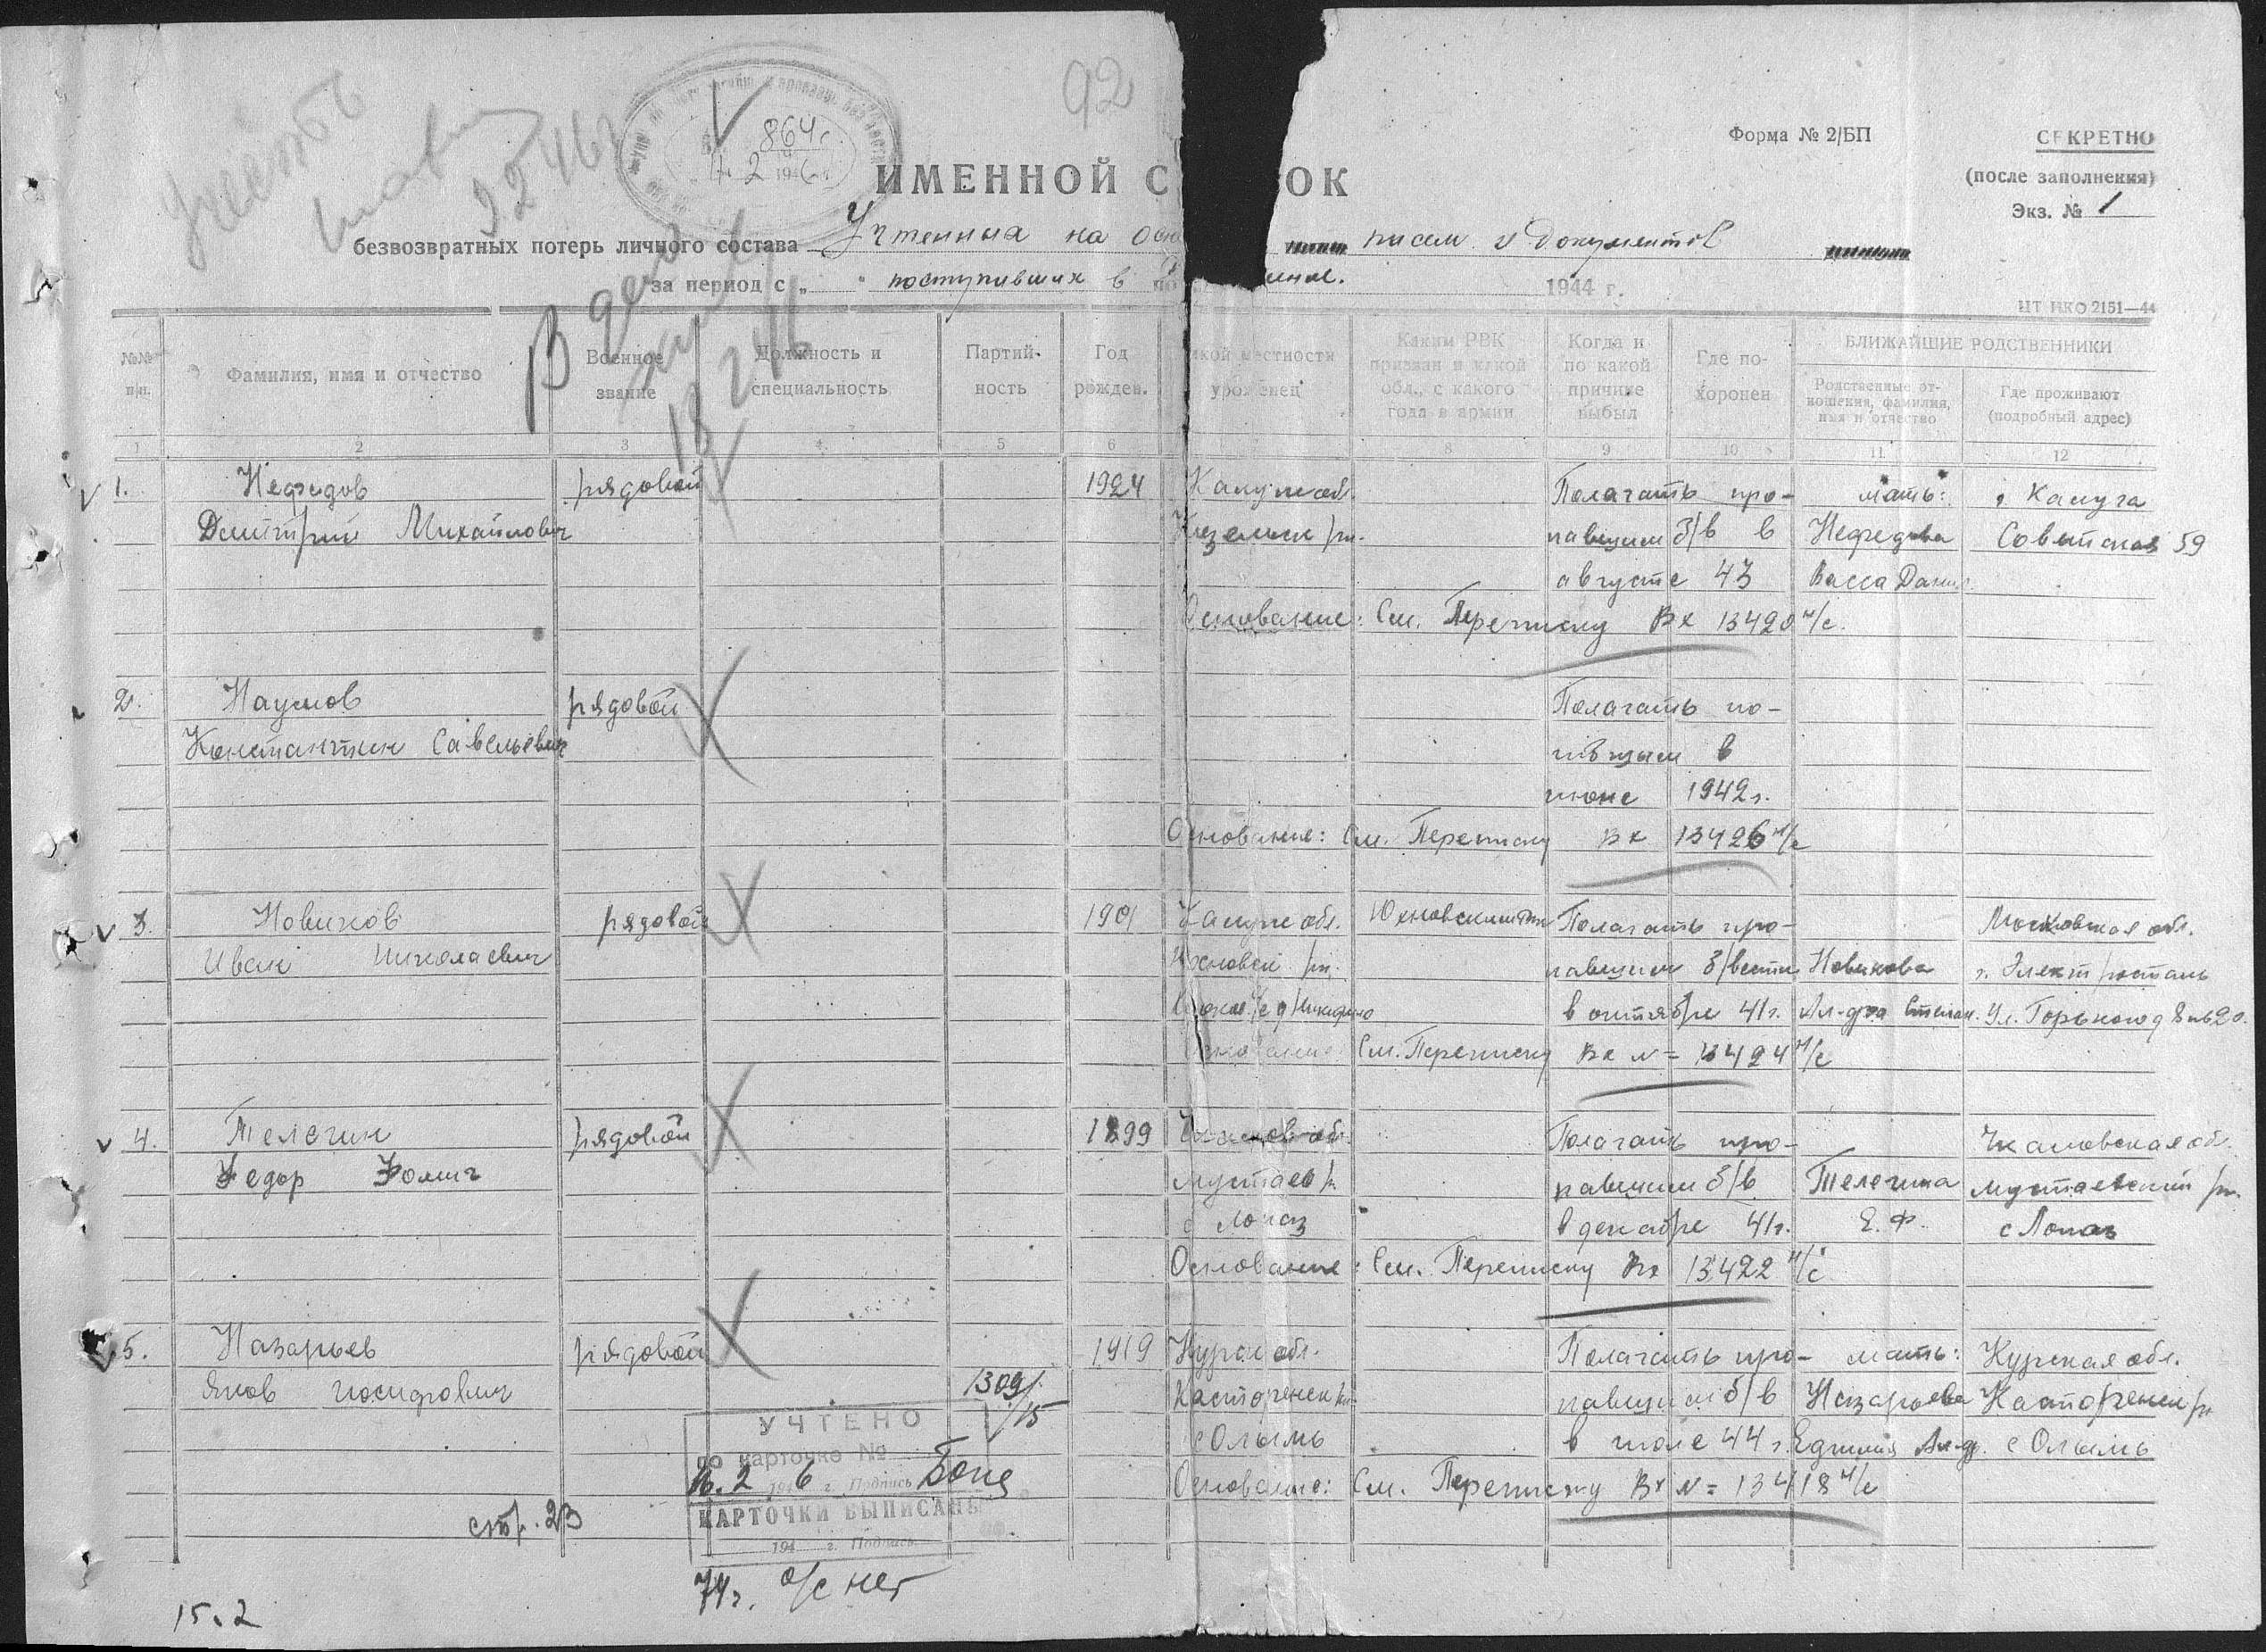 92
864с
Форма № 2/БП
СЕКРЕТНО
(после заполнения)
Экз. № 1
ИМЕННОЙ С ОК
безвозвратных потерь личного состава Учтенных на писем и документов
за период с „ “ поступивших в 1944 г.
ЦТ НКО 2151—44
№№ п/п.
Фамилия, имя и отчество
Военное звание
Должность и специальность
Партийность
Год рожден.
кой местности уроженец
Каким РВК призван и какой обл., с какого года в армии
Когда и по какой причине выбыл
Где похоронен
БЛИЖАЙШИЕ РОДСТВЕННИКИ
Родственные отношения, фамилия, имя и отчество
Где проживают (подробный адрес)
1 2 3 4 5 6 8 9 10 11 12
1. Нефедов рядовой 1924 Калуж обл. Полагать про- мать: г Калуга
Дмитрий Михайлович Козельск р-н. павшим б/в в Нефедова Советская 59
августе 43 Васса Данил.
Основание: См. Переписку Вх 13420 н/с.
2. Наумов рядовой Полагать по-
Константин Савельевич гибшим в
июне 1942 г.
Основание: См. Переписку Вх 13426 н/с
3. Новиков рядовой 1901 Калуж обл. Юхновским Полагать про- Московская обл.
Иван Николаевич Юхновск р-н. павшим б/вести Новикова г. Электросталь
в октябре 41 г. Ал-дра Степан. Ул. Горького д 8 кв 20.
Основание См. Переписку Вх № = 13424 н/с
4. Телегин рядовой 1899 Чкалов обл. Полагать про- Чкаловская обл.
Федор Фомич Мустаев р. павшим б/в Телегина Мустаевский р-н.
с Лопаз в декабре 41 г. Е. Ф. с Лопаз
Основание: См. Переписку Вх 13422 н/с
5. Назарьев рядовой 1919 Курск обл. Полагать про- мать: Курская обл.
Яков Иосифович 1309/15 Касторенск р-н павшим б/в Назарьева Касторенск р-н
с Олымь в июле 44 г. Ал-др. с Олымь
Основание: См. Переписку Вх № = 13418 н/с
УЧТЕНО
по карточке №
16.2 1946 г. Подпись
КАРТОЧКИ ВЫПИСАНЫ
194 г. Подпись
стр. 23
о/с нет
15.2